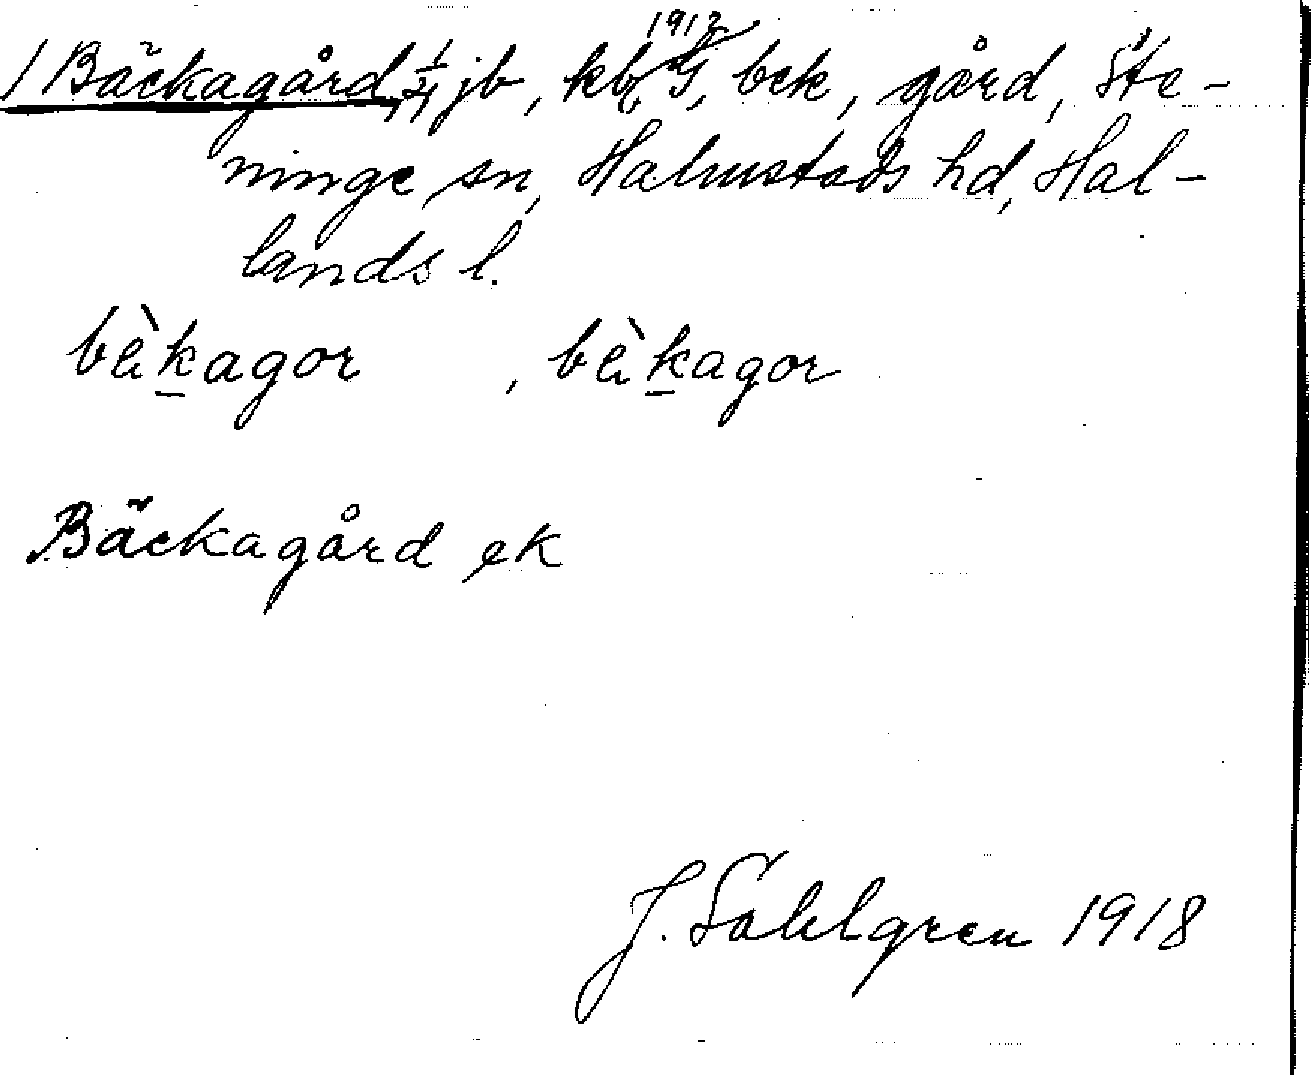 1912
/ Bäckagård, 1/21 jb, kb, G, bek, gård, Ste-
ninge sn, Halmstads hd, Hal-
lands l.
bèkagor , bèkagor
Bäckagård ek
J. Sahlgren 1918